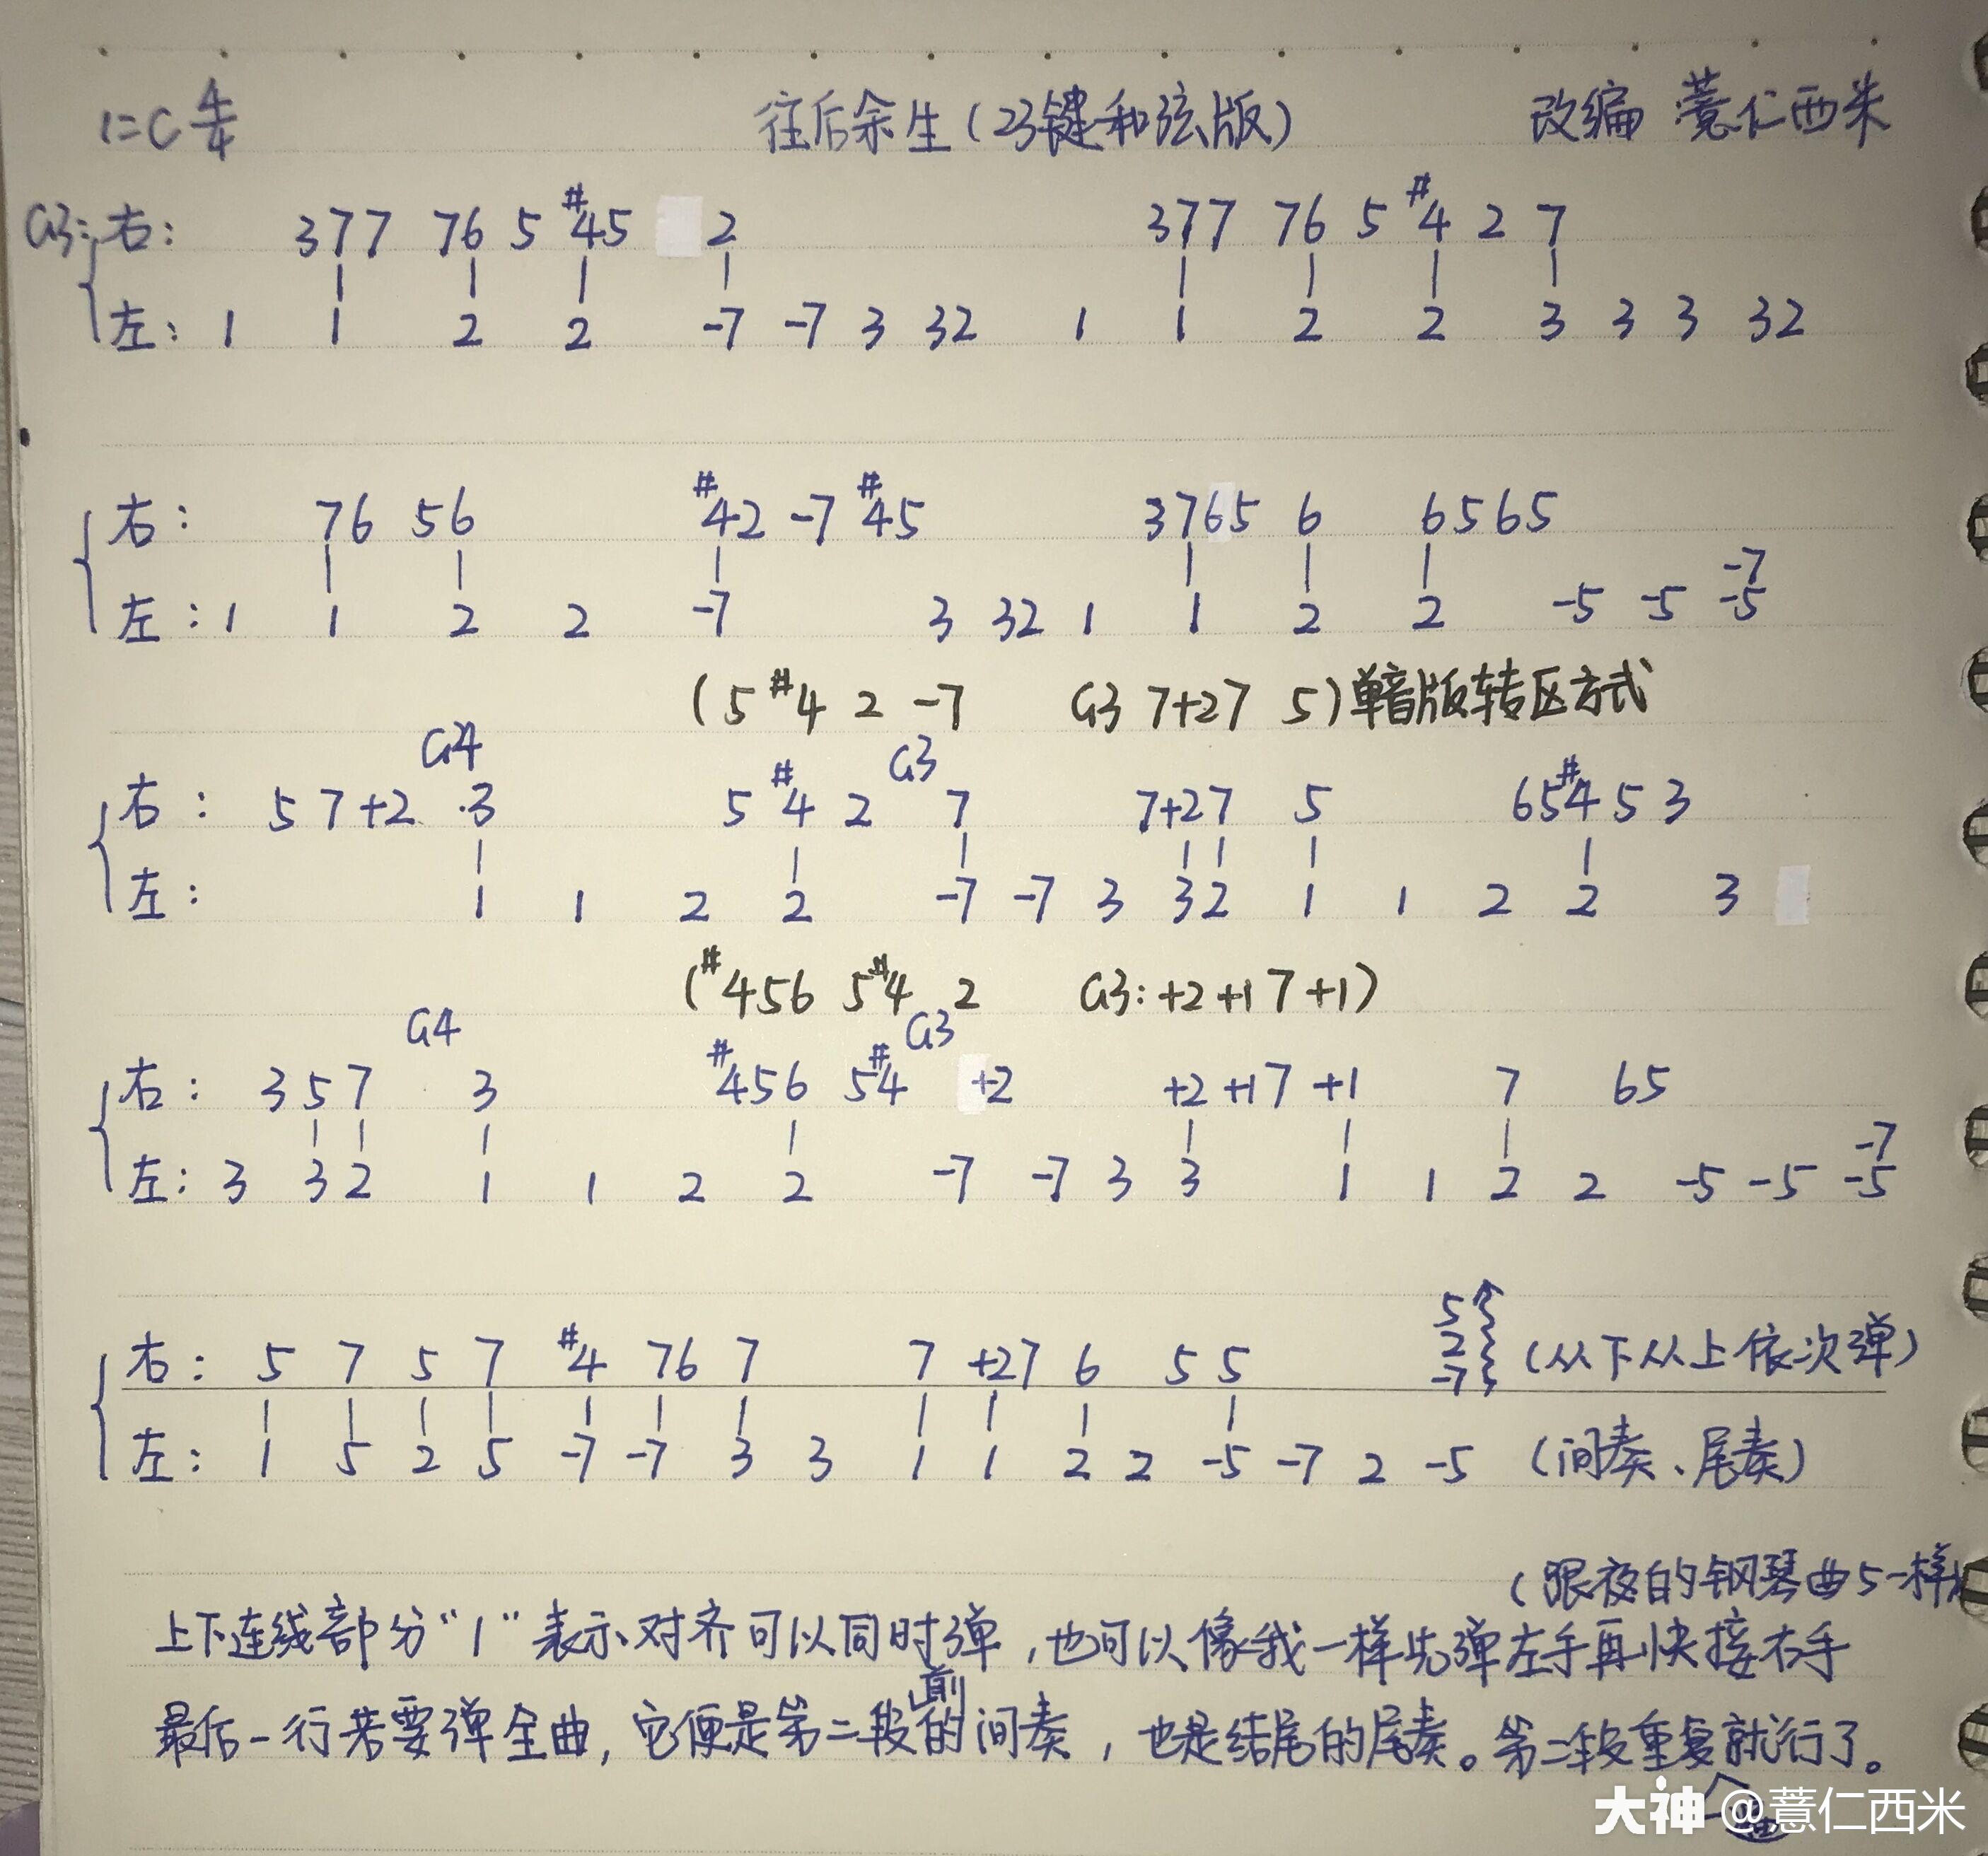 1=C 4/4 往后余生(23键和弦版) 改编 薏仁西米
G3: 右: 377 76 5 #45 2 377 76 5 #4 2 7
左: 1 1 2 2 -7 -7 3 32 1 1 2 2 3 3 3 32
右: 76 56 #42 -7 #45 3765 6 6565
左: 1 1 2 2 -7 3 32 1 1 2 2 -5 -5 -7 -5
(5 #4 2 -7 G3 7+27 5)单音版转区方式
G4 G3
右: 5 7 +2 ·3 5 #4 2 7 7+27 5 65#4 5 3
左: 1 1 2 2 -7 -7 3 32 1 1 2 2 3
(#456 5#4 2 G3: +2 +1 7 +1)
G4 G3
右: 3 5 7 3 #456 5#4 +2 +2 +1 7 +1 7 65
左: 3 32 1 1 2 2 -7 -7 3 3 1 1 2 2 -5 -5 -7 -5
右: 5 7 5 7 #4 76 7 7 +27 6 5 5 5 2 -7 (从下从上依次弹)
左: 1 5 2 5 -7 -7 3 3 1 1 2 2 -5 -7 2 -5 (间奏、尾奏)
(跟夜的钢琴曲5一样)
上下连线部分“|”表示对齐可以同时弹,也可以像我一样先弹左手再快接右手
最后一行若要弹全曲,它便是第二段前的间奏,也是结尾的尾奏。第二段重复就行了。
大神 @薏仁西米